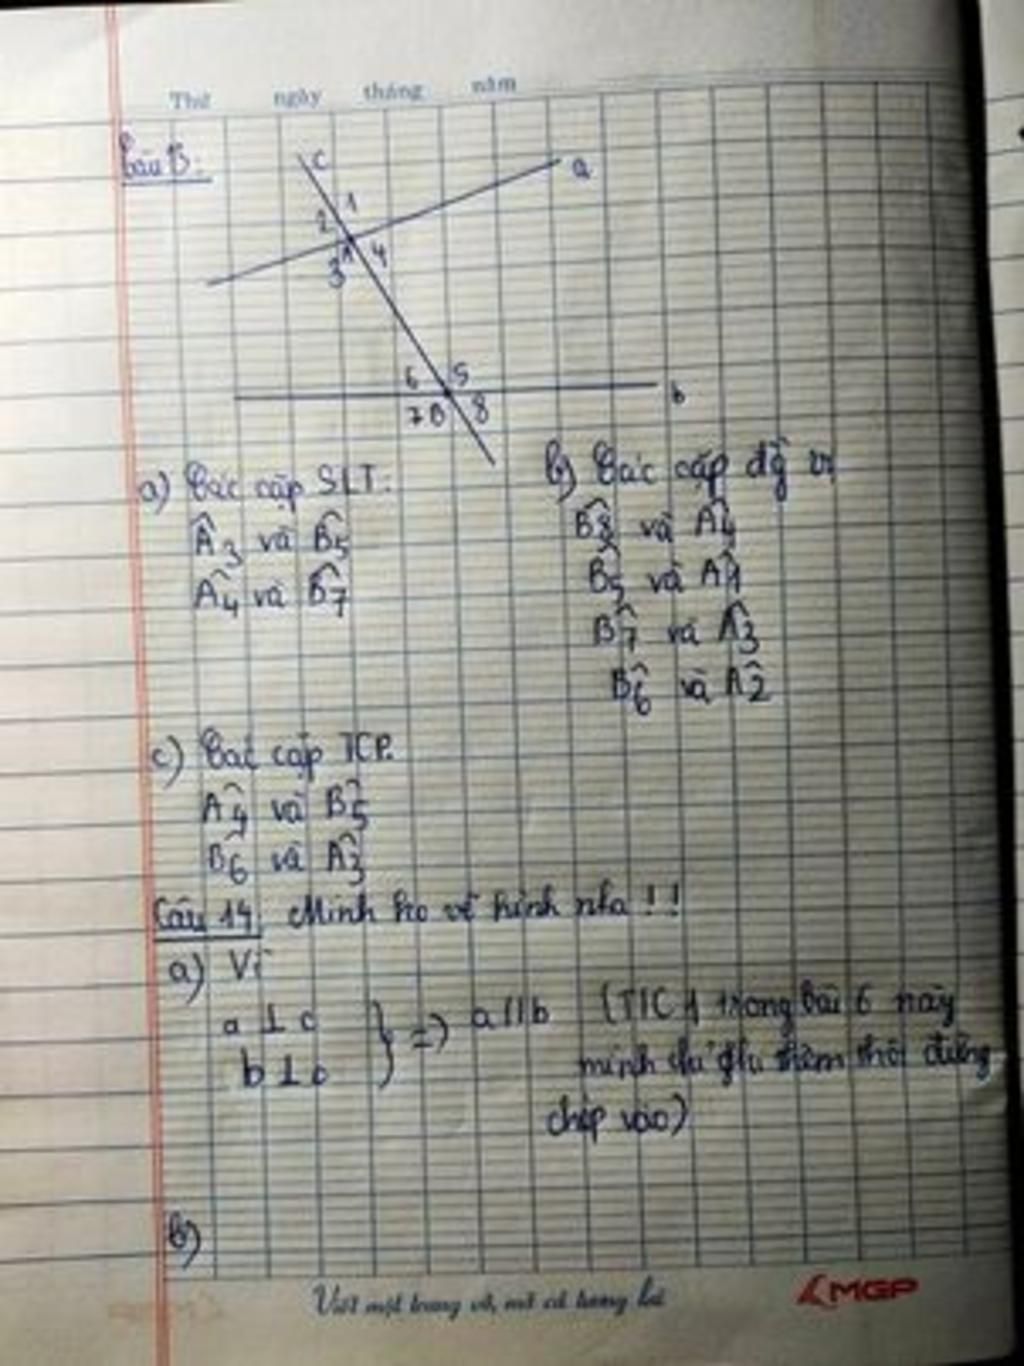 Thứ ngày tháng năm
Câu 13:
c
a
2 1
3 A 4
6 5
b
7 B 8
a) Các cặp SLT:
Â3 và B̂5
Â4 và B̂7
b) Các cặp đg vị
B̂8 và Â4
B̂5 và Â1
B̂7 và Â3
B̂6 và Â2
c) Các cặp TCP.
Â4 và B̂5
B̂6 và Â3
Câu 14: Mình ko vẽ hình nha!!
a) Vì
a ⊥ c
b ⊥ c
} => a // b (T/C 1 trong bài 6 này
mình chỉ ghi thêm thôi đừng
chép vào)
b)
Viết một trang vở, mở cả tương lai
MGP